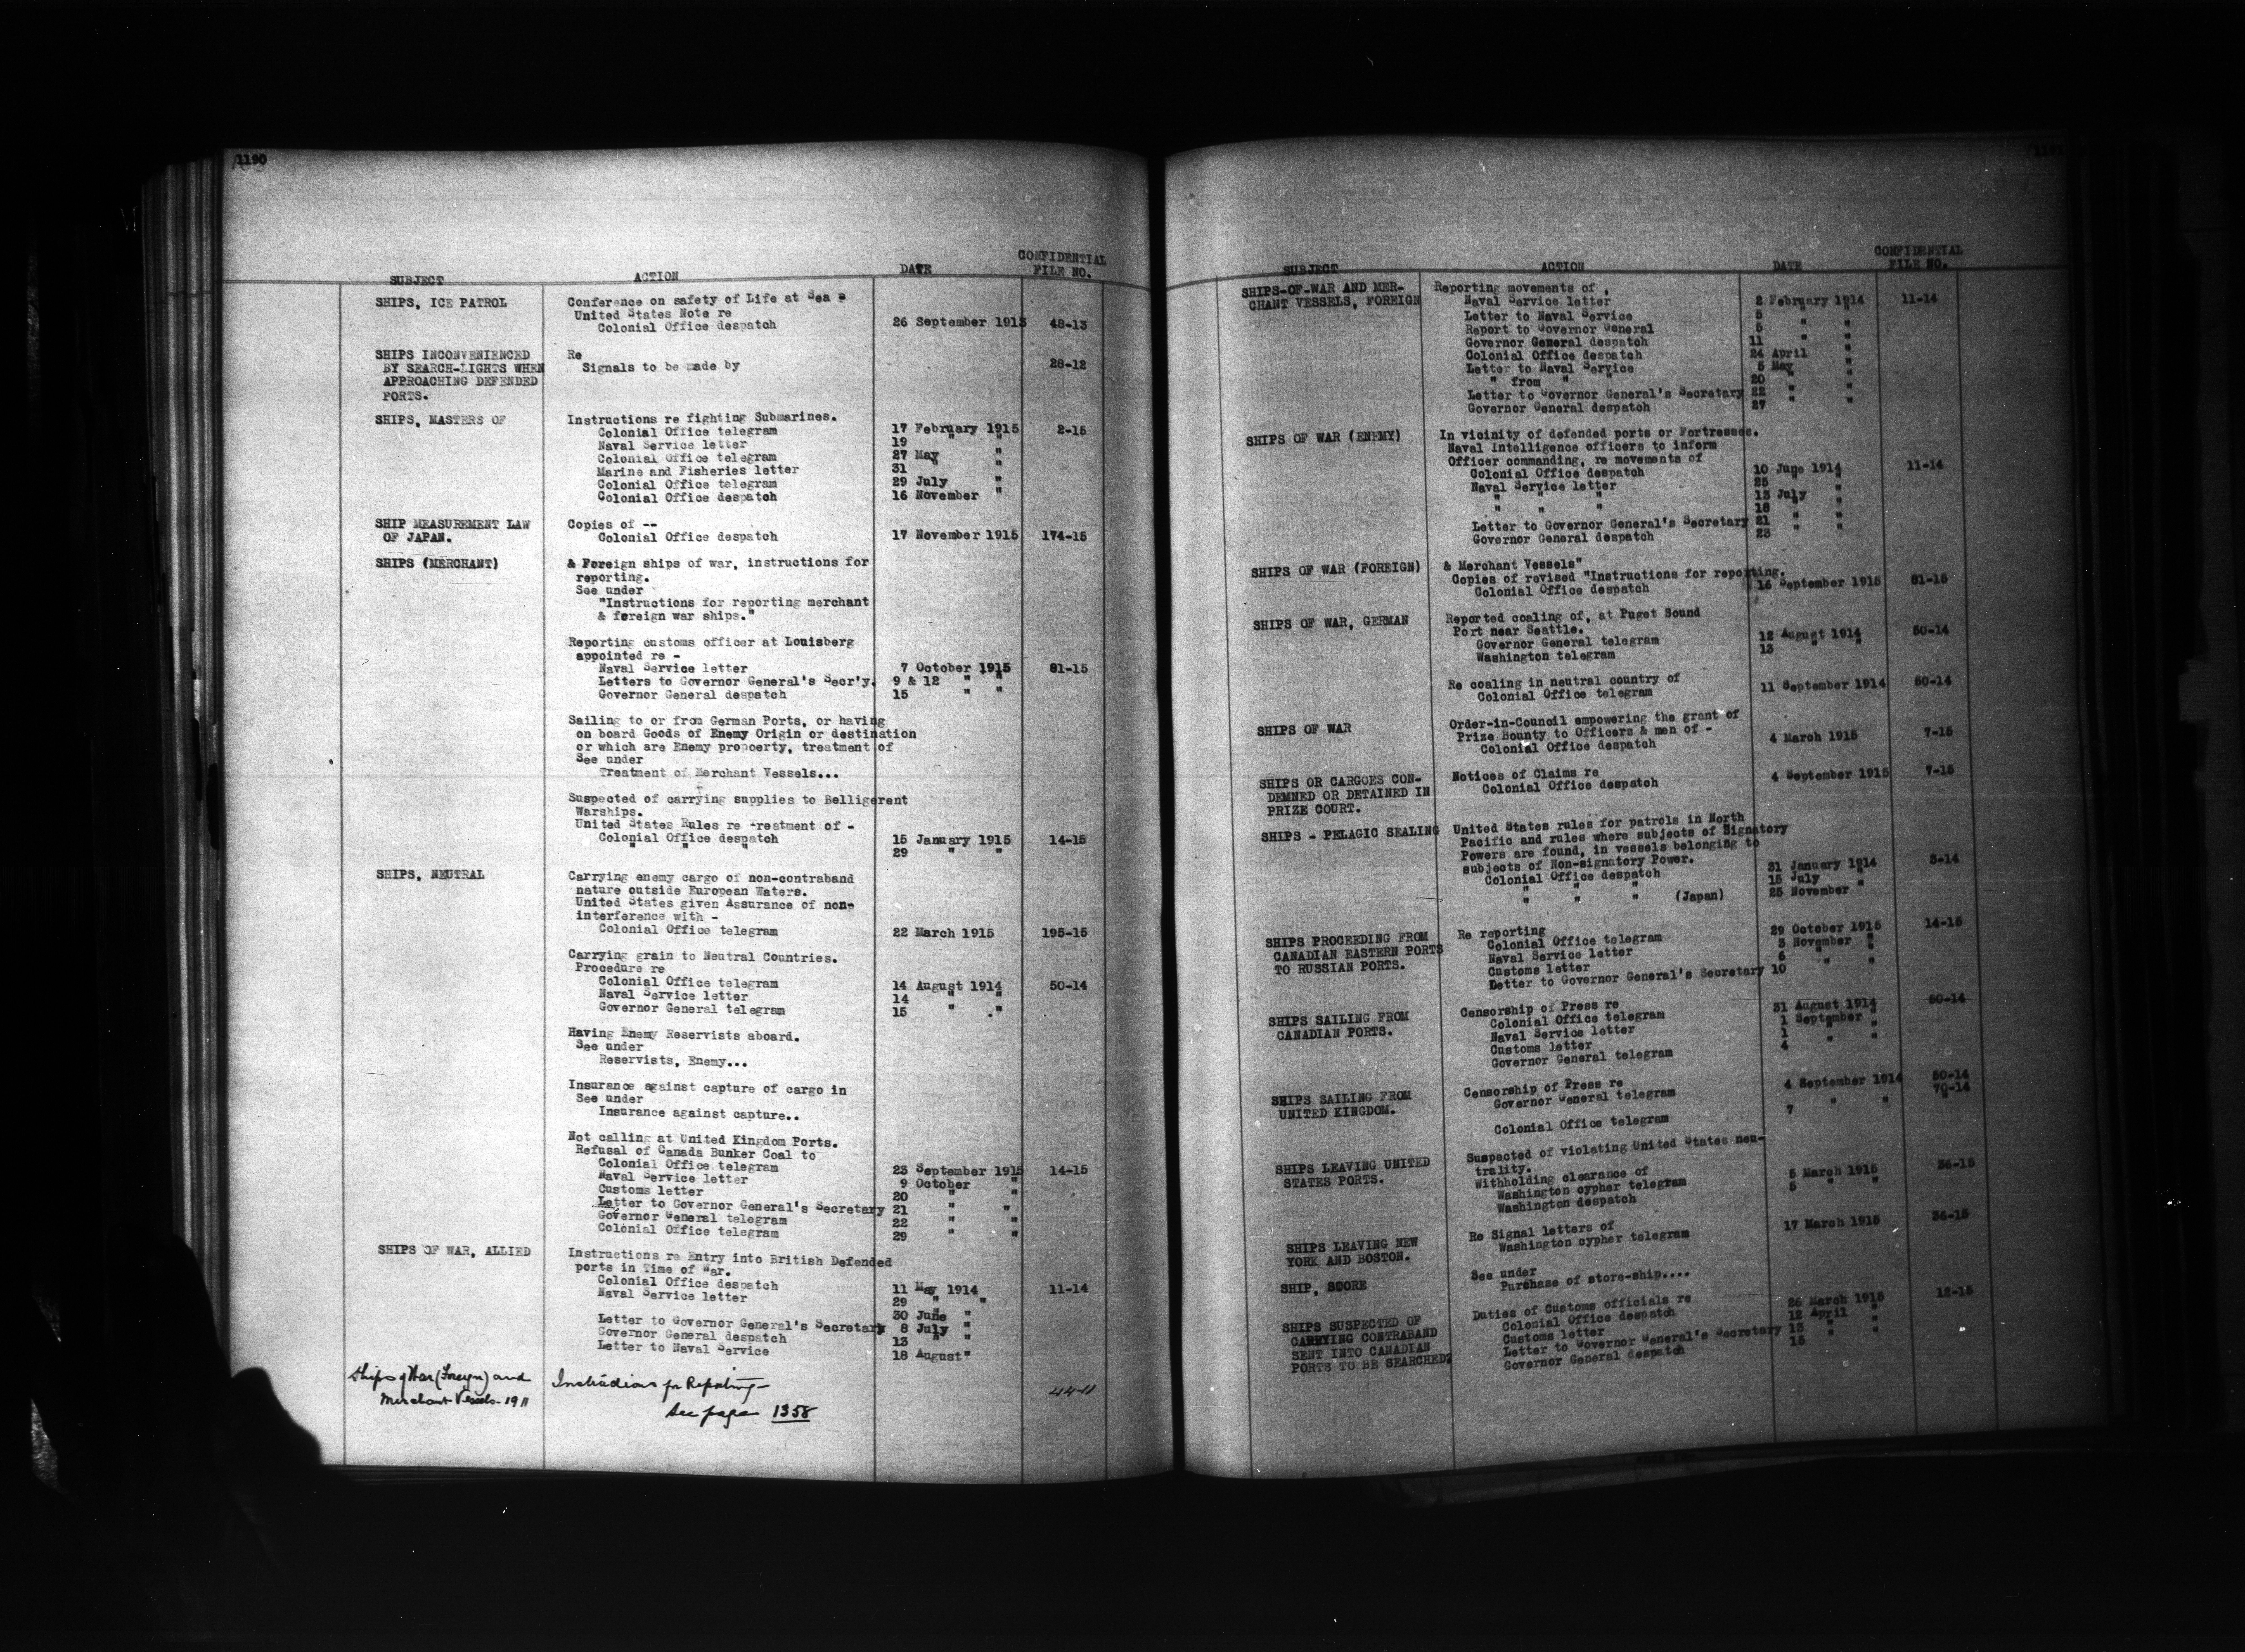 1190
SUBJECT ACTION DATE CONFIDENTIAL FILE NO.
SHIPS, ICE PATROL Conference on safety of Life at Sea
United States Note re
Colonial Office despatch 26 September 1913 48-13
SHIPS INCONVENIENCED Re
BY SEARCH-LIGHTS WHEN Signals to be made by 28-12
APPROACHING DEFENDED
PORTS.
SHIPS, MASTERS OF Instructions re fighting Submarines.
Colonial Office telegram 17 February 1915 2-15
Naval Service letter 19 " "
Colonial Office telegram 27 May "
Marine and Fisheries letter 31 "
Colonial Office telegram 29 July "
Colonial Office despatch 16 November "
SHIP MEASUREMENT LAW Copies of --
OF JAPAN. Colonial Office despatch 17 November 1915 174-15
SHIPS (MERCHANT) & Foreign ships of war, instructions for
reporting.
See under
"Instructions for reporting merchant
& foreign war ships."
Reporting customs officer at Louisberg
appointed re -
Naval Service letter 7 October 1915 81-15
Letters to Governor General's Secr'y. 9 & 12 " "
Governor General despatch 15 " "
Sailing to or from German Ports, or having
on board Goods of Enemy Origin or destination
or which are Enemy propoerty, treatment of
See under
Treatment of Merchant Vessels...
Suspected of carrying supplies to Belligerent
Warships.
United States Rules re Treatment of -
Colonial Office despatch 15 January 1915 14-15
" " " 29 " "
SHIPS, NEUTRAL Carrying enemy cargo of non-contraband
nature outside European Waters.
United States given Assurance of non-
interference with -
Colonial Office telegram 22 March 1915 195-15
Carrying grain to Neutral Countries.
Procedure re
Colonial Office telegram 14 August 1914 50-14
Naval Service letter 14 " "
Governor General telegram 15 " "
Having Enemy Reservists aboard.
See under
Reservists, Enemy...
Insurance against capture of cargo in
See under
Insurance against capture..
Not calling at United Kingdom Ports.
Refusal of Canada Bunker Coal to
Colonial Office telegram 23 September 1915 14-15
Naval Service letter 9 October "
Customs letter 20 " "
Letter to Governor General's Secretary 21 " "
Governor General telegram 22 " "
Colonial Office telegram 29 " "
SHIPS OF WAR, ALLIED Instructions re Entry into British Defended
ports in Time of War.
Colonial Office despatch 11 May 1914 11-14
Naval Service letter 29 " "
30 June "
Letter to Governor General's Secretary 8 July "
Governor General despatch 13 " "
Letter to Naval Service 18 August "
Ships of War (Foreign) and Instructions for Reporting - 44-11
Merchant Vessels - 1911 See page 1358
SUBJECT ACTION DATE CONFIDENTIAL FILE NO.
SHIPS-OF-WAR AND MER- Reporting movements of
CHANT VESSELS, FOREIGN Naval Service letter 2 February 1914 11-14
Letter to Naval Service 5 " "
Report to Governor General 5 " "
Governor General despatch 11 " "
Colonial Office despatch 24 April "
Letter to Naval Service 5 May "
" from " " 20 " "
Letter to Governor General's Secretary 22 " "
Governor General despatch 27 " "
SHIPS OF WAR (ENEMY) In vicinity of defended ports or Fortresses.
Naval Intelligence officers to inform
Officer commanding, re movements of
Colonial Office despatch 10 June 1914 11-14
Naval Service letter 25 " "
" " " 13 July "
" " " 18 " "
Letter to Governor General's Secretary 21 " "
Governor General despatch 23 " "
SHIPS OF WAR (FOREIGN) & Merchant Vessels"
Copies of revised "Instructions for reporting.
Colonial Office despatch 16 September 1915 81-15
SHIPS OF WAR, GERMAN Reported coaling of, at Puget Sound
Port near Seattle.
Governor General telegram 12 August 1914 50-14
Washington telegram 13 " "
Re coaling in neutral country of
Colonial Office telegram 11 September 1914 50-14
SHIPS OF WAR Order-in-Council empowering the grant of
Prize Bounty to Officers & men of -
Colonial Office despatch 4 March 1915 7-15
SHIPS OR CARGOES CON- Notices of Claims re
DEMNED OR DETAINED IN Colonial Office despatch 4 September 1915 7-15
PRIZE COURT.
SHIPS - PELAGIC SEALING United States rules for patrols in North
Pacific and rules where subjects of Signatory
Powers are found, in vessels belonging to
subjects of Non-signatory Power.
Colonial Office despatch 31 January 1914 3-14
" " " 15 July "
" " " (Japan) 25 November
SHIPS PROCEEDING FROM Re reporting
CANADIAN EASTERN PORTS Colonial Office telegram 29 October 1915 14-15
TO RUSSIAN PORTS. Naval Service letter 3 November "
Customs letter 6 " "
Letter to Governor General's Secretary 10
SHIPS SAILING FROM Censorship of Press re
CANADIAN PORTS. Colonial Office telegram 31 August 1914 50-14
Naval Service letter 1 September "
Customs letter 1 " "
Governor General telegram 4 " "
SHIPS SAILING FROM Censorship of Press re
UNITED KINGDOM. Governor General telegram 4 September 1914 50-14
70-14
Colonial Office telegram 7 " "
SHIPS LEAVING UNITED Suspected of violating United States neu-
STATES PORTS. trality.
Withholding clearance of
Washington cypher telegram 5 March 1915 36-15
Washington despatch 5 " "
SHIPS LEAVING NEW Re Signal letters of
YORK AND BOSTON. Washington cypher telegram 17 March 1915 36-15
SHIP, STORE See under
Purchase of store-ship....
SHIPS SUSPECTED OF Duties of Customs officials re
CARRYING CONTRABAND Colonial Office despatch 26 March 1915 12-15
SENT INTO CANADIAN Customs letter 12 April "
PORTS TO BE SEARCHED Letter to Governor General's Secretary 13 " "
Governor General despatch 15 " "